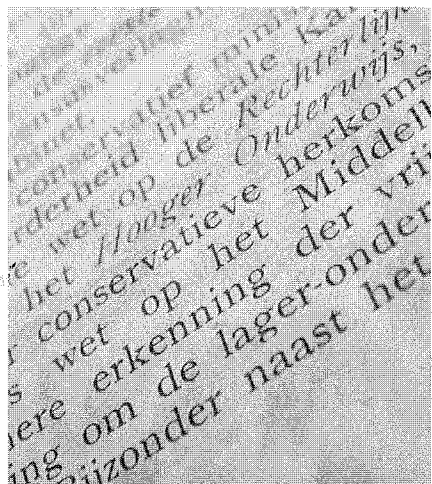 de eerste
binet.
conservatief minis
rderheid liberale Ka
re wet op de Rechterlijk
het Hooger Onderwijs,
r conservatieve herkoms
s wet op het Middell
ere erkenning der vrij
ing om de lager-onder
Bijzonder naast het